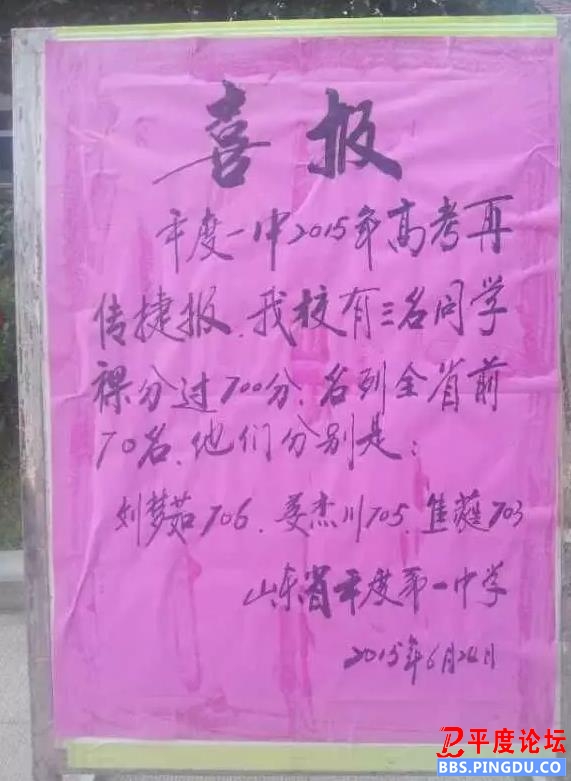 喜报
平度一中2015年高考再
传捷报.我校有三名同学
裸分过700分.名列全省前
70名.他们分别是:
刘梦茹706.姜杰川705.焦蕴703
山东省平度第一中学
2015年6月24日
平度论坛
BBS.PINGDU.CO